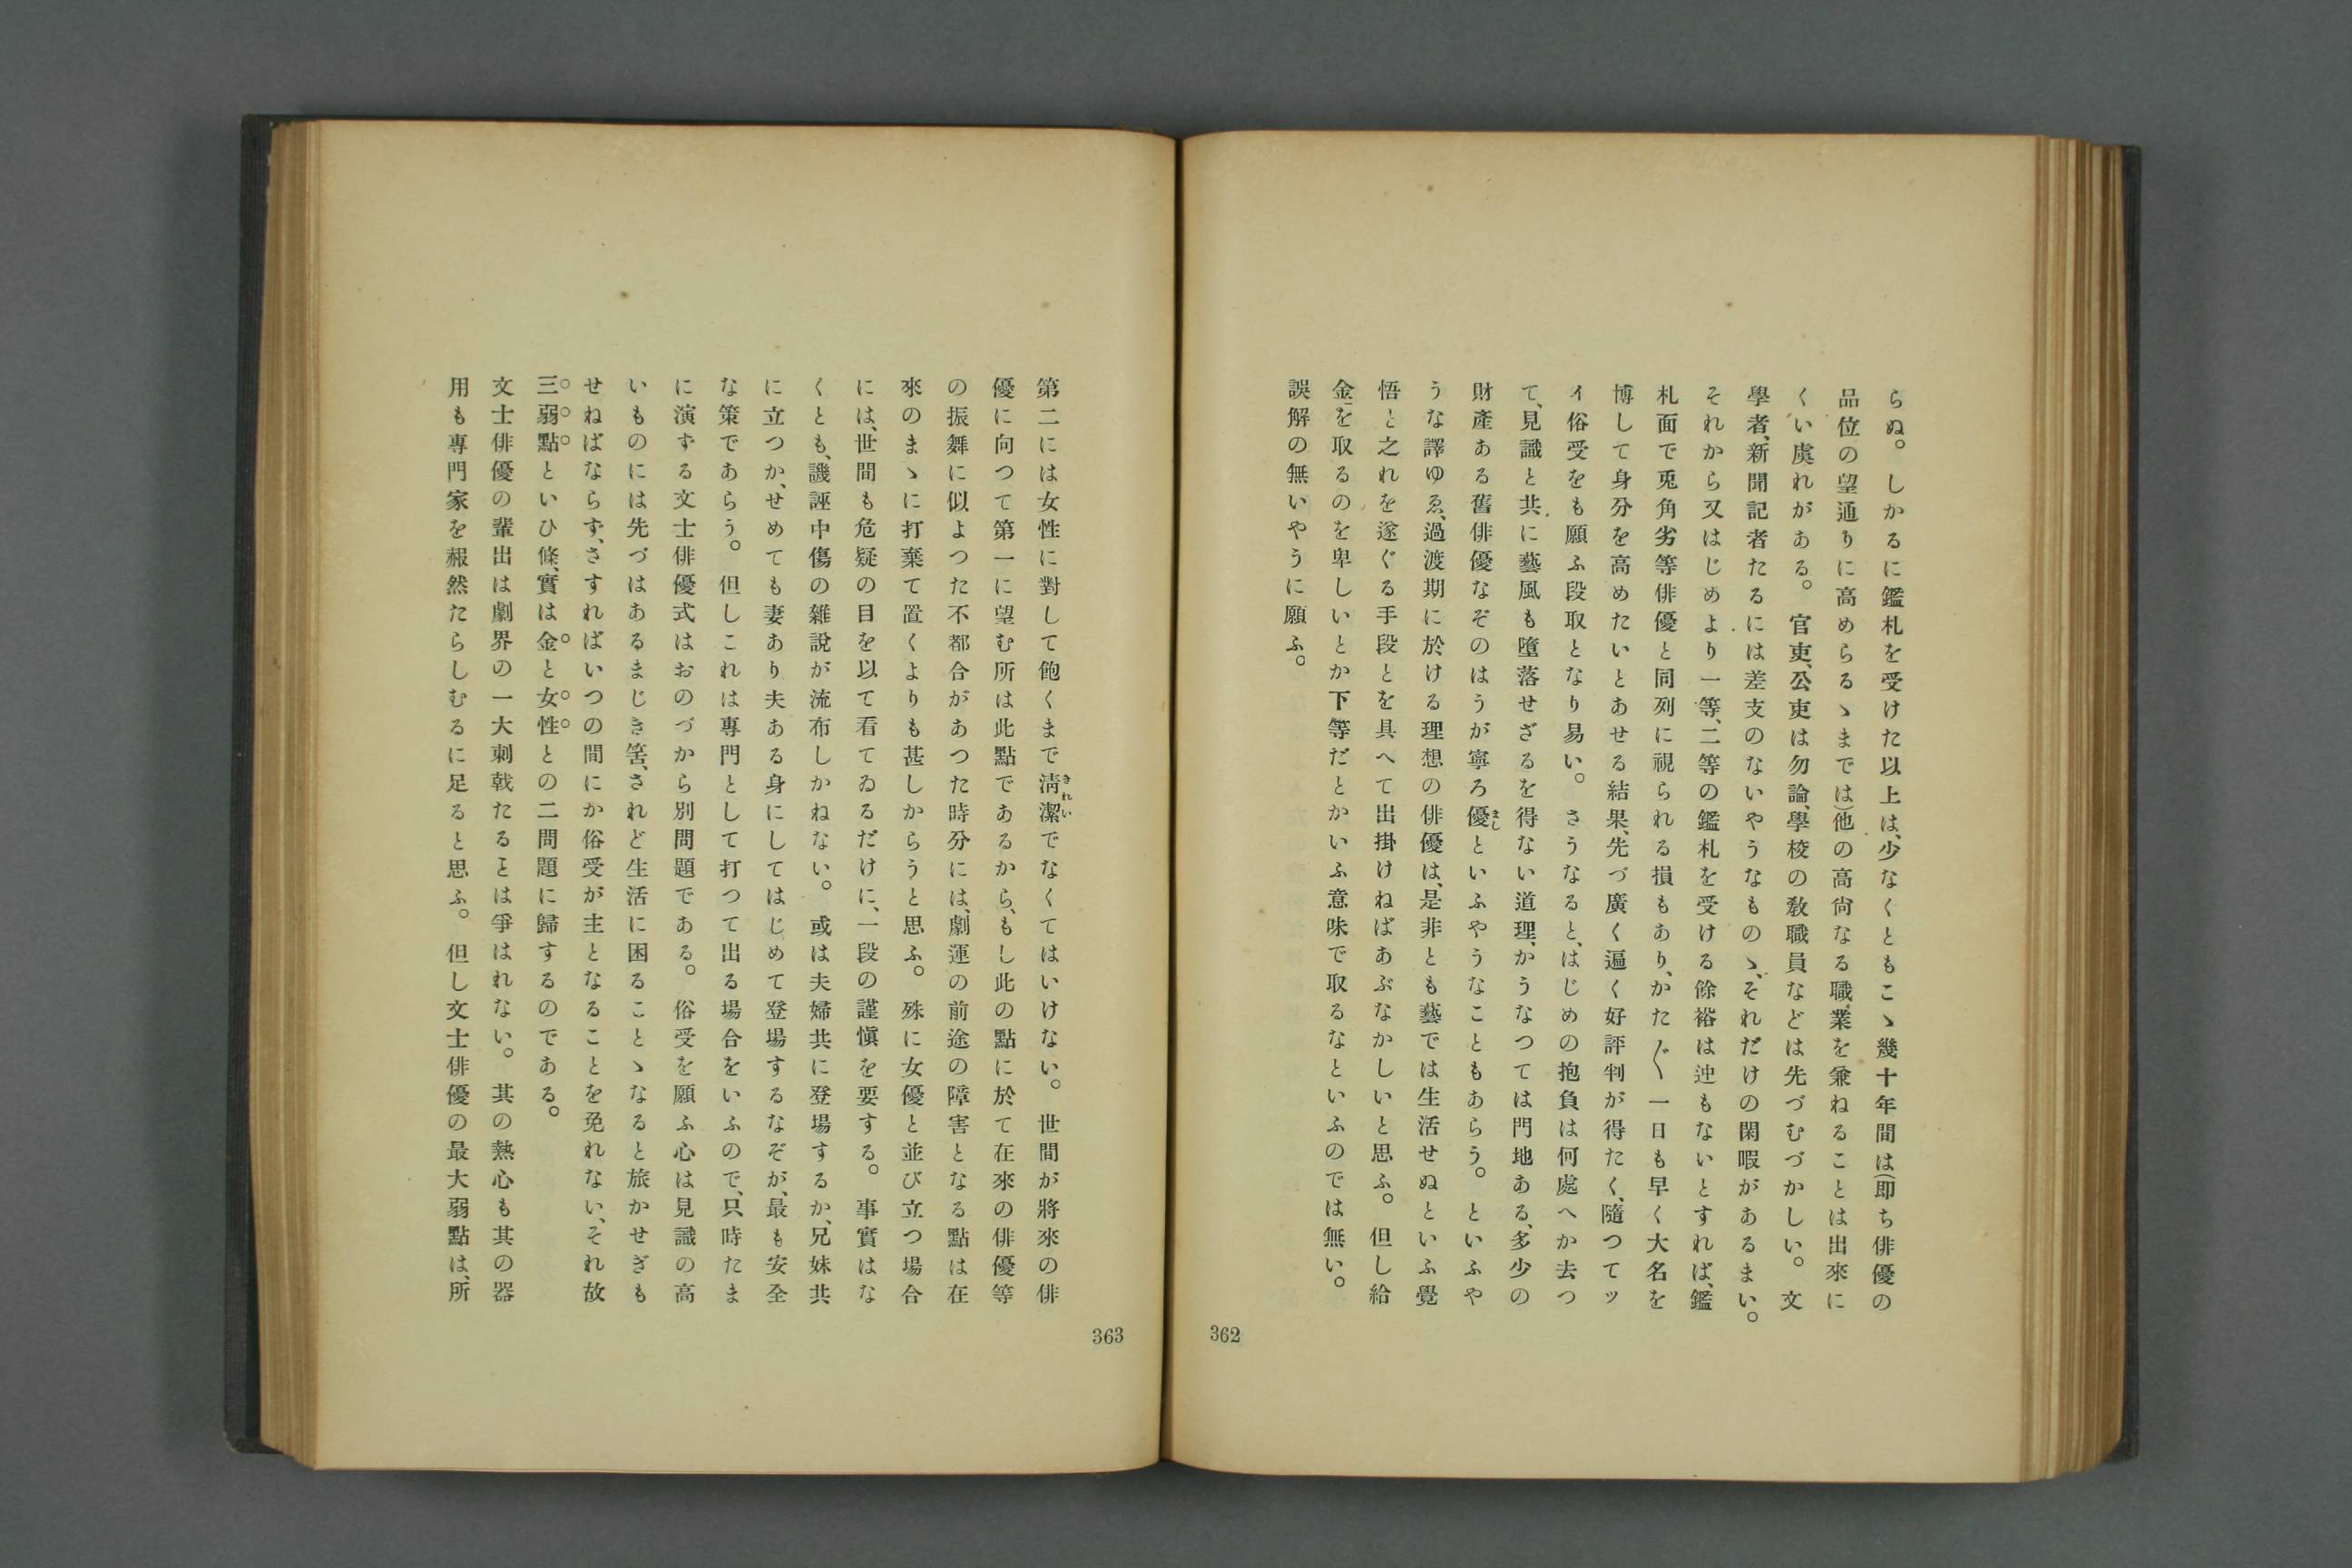 らぬ。しかるに鑑札を受けた以上は、少なくともこゝ幾十年間は(即ち俳優の
品位の望通りに高めらるゝまでは)他の高尙なる職業を兼ねることは出來に
くい虞れがある。官吏、公吏は勿論、學校の敎職員などは先づむづかしい。文
學者、新聞記者たるには差支のないやうなものゝ、それだけの閑暇があるまい。
それから又はじめより一等、二等の鑑札を受ける餘裕は迚もないとすれば、鑑
札面で兎角劣等俳優と同列に視られる損もあり、かた〴〵一日も早く大名を
博して身分を高めたいとあせる結果、先づ廣く遍く好評判が得たく、隨つてッ
イ俗受をも願ふ段取となり易い。さうなると、はじめの抱負は何處へか去つ
て、見識と共に藝風も墮落せざるを得ない道理、かうなつては門地ある、多少の
財產ある舊俳優なぞのはうが寧ろ優といふやうなこともあらう。といふや
うな譯ゆゑ、過渡期に於ける理想の俳優は、是非とも藝では生活せぬといふ覺
悟と之れを遂ぐる手段とを具へて出掛けねばあぶなかしいと思ふ。但し給
金を取るのを卑しいとか下等だとかいふ意味で取るなといふのでは無い。
誤解の無いやうに願ふ。
362
第二には女性に對して飽くまで淸潔でなくてはいけない。世間が將來の俳
優に向つて第一に望む所は此點であるから、もし此の點に於て在來の俳優等
の振舞に似よつた不都合があつた時分には、劇運の前途の障害となる點は在
來のまゝに打棄て置くよりも甚しからうと思ふ。殊に女優と並び立つ場合
には、世間も危疑の目を以て看てゐるだけに、一段の謹愼を要する。事實はな
くとも、譏誣中傷の雜說が流布しかねない。或は夫婦共に登場するか、兄妹共
に立つか、せめても妻あり夫ある身にしてはじめて登場するなぞが、最も安全
な策であらう。但しこれは專門として打つて出る場合をいふので、只時たま
に演ずる文士俳優式はおのづから別問題である。俗受を願ふ心は見識の高
いものには先づはあるまじき筈、されど生活に困ることゝなると旅かせぎも
せねばならず、さすればいつの間にか俗受が主となることを免れない、それ故
三弱點といひ條、實は金と女性との二問題に歸するのである。
文士俳優の輩出は劇界の一大刺戟たることは爭はれない。其の熱心も其の器
用も專門家を赧然たらしむるに足ると思ふ。但し文士俳優の最大弱點は、所
363